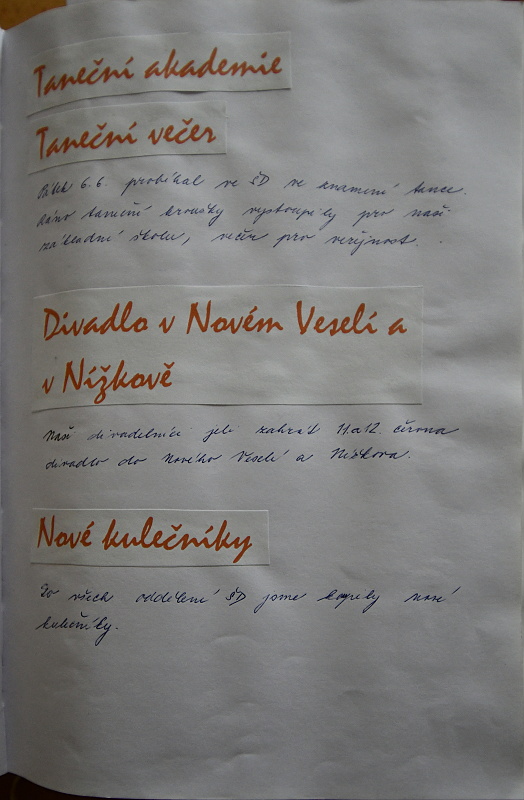 Taneční akademie
Taneční večer
Pátek 6.6. probíhal ve ŠD ve znamení tance.
Ráno taneční kroužky vystoupily pro naši
základní školu, večer pro veřejnost.
Divadlo v Novém Veselí a
v Nížkově
Naši divadelníci jeli zahrát 11. a 12. června
divadlo do Nového Veselí a Nížkova.
Nové kulečníky
Do všech oddělení ŠD jsme koupily nové
kulečníky.